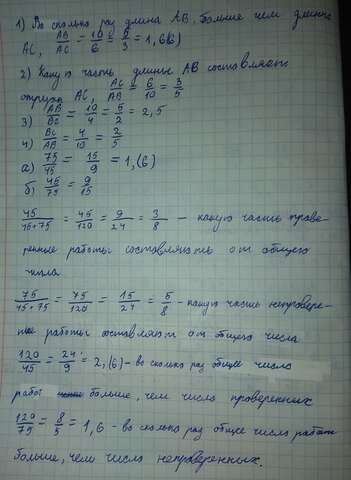 1) Во сколько раз длина AB, больше чем длинна
AC, AB/AC = 10/6 = 5/3 = 1,6(6)
2) Какую часть длины AB составляет
отрезок AC, AC/AB = 6/10 = 3/5
3) AB/BC = 10/4 = 5/2 = 2,5
4) BC/AB = 4/10 = 2/5
а) 75/45 = 15/9 = 1,(6)
б) 45/75 = 9/15
45/45+75 = 45/120 = 9/24 = 3/8 - какую часть прове-
ренные работы составляют от общего
числа
75/45+75 = 75/120 = 15/24 = 5/8 - какую часть непровере-
ные работы составляют от общего числа
120/45 = 24/9 = 2,(6) - во сколько раз общее число
работ больше, чем число проверенных
120/75 = 8/5 = 1,6 - во сколько раз общее число работ
больше, чем число непроверенных.